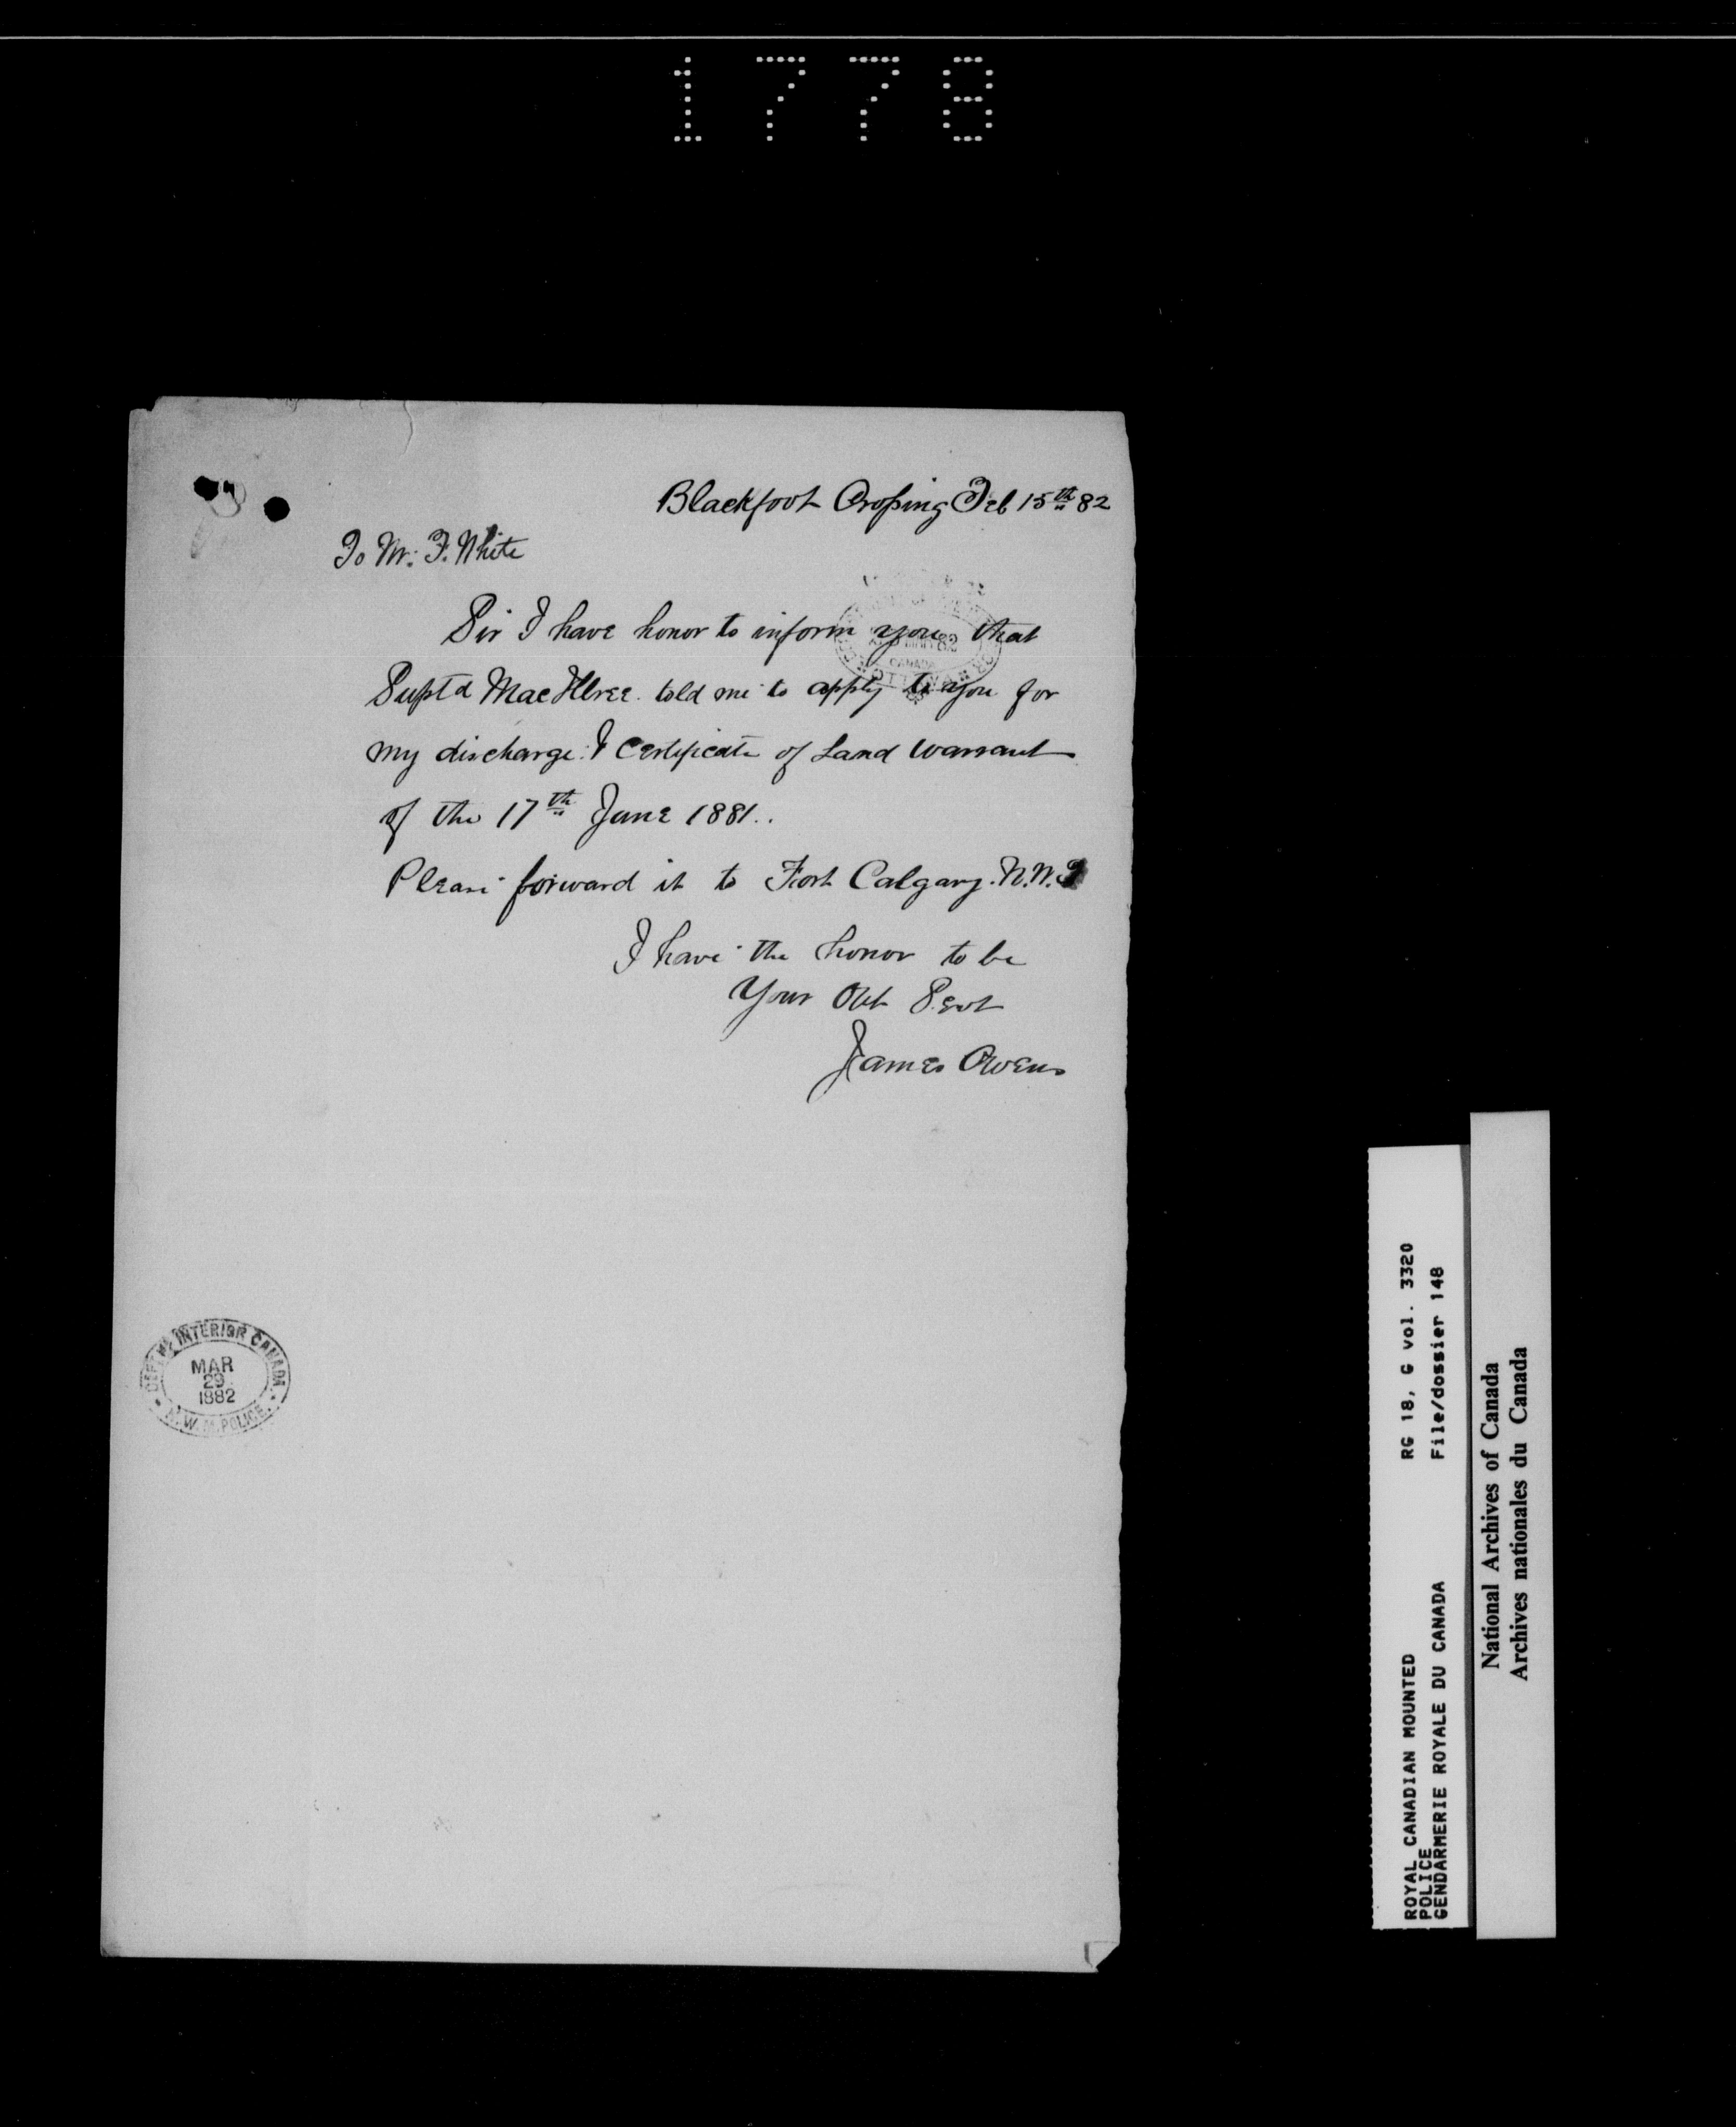 1778
Blackfoot Crossing Feb 15th 82
To Mr. F. White
Sir I have honor to inform you that
Supt'd MacIllree told me to apply to you for
my discharge & Certificate of Land Warrant
of the 17th June 1881..
Please forward it to Fort Calgary. N.W.T
I have the honor to be
Your Obt Sevt
James Owens
CANADA
OTTAWA
DEPT INTERIOR CANADA
MAR
29
1882
N.W.M.POLICE.
ROYAL CANADIAN MOUNTED
POLICE
GENDARMERIE ROYALE DU CANADA
RG 18, G vol. 3320
File/dossier 148
National Archives of Canada
Archives nationales du Canada